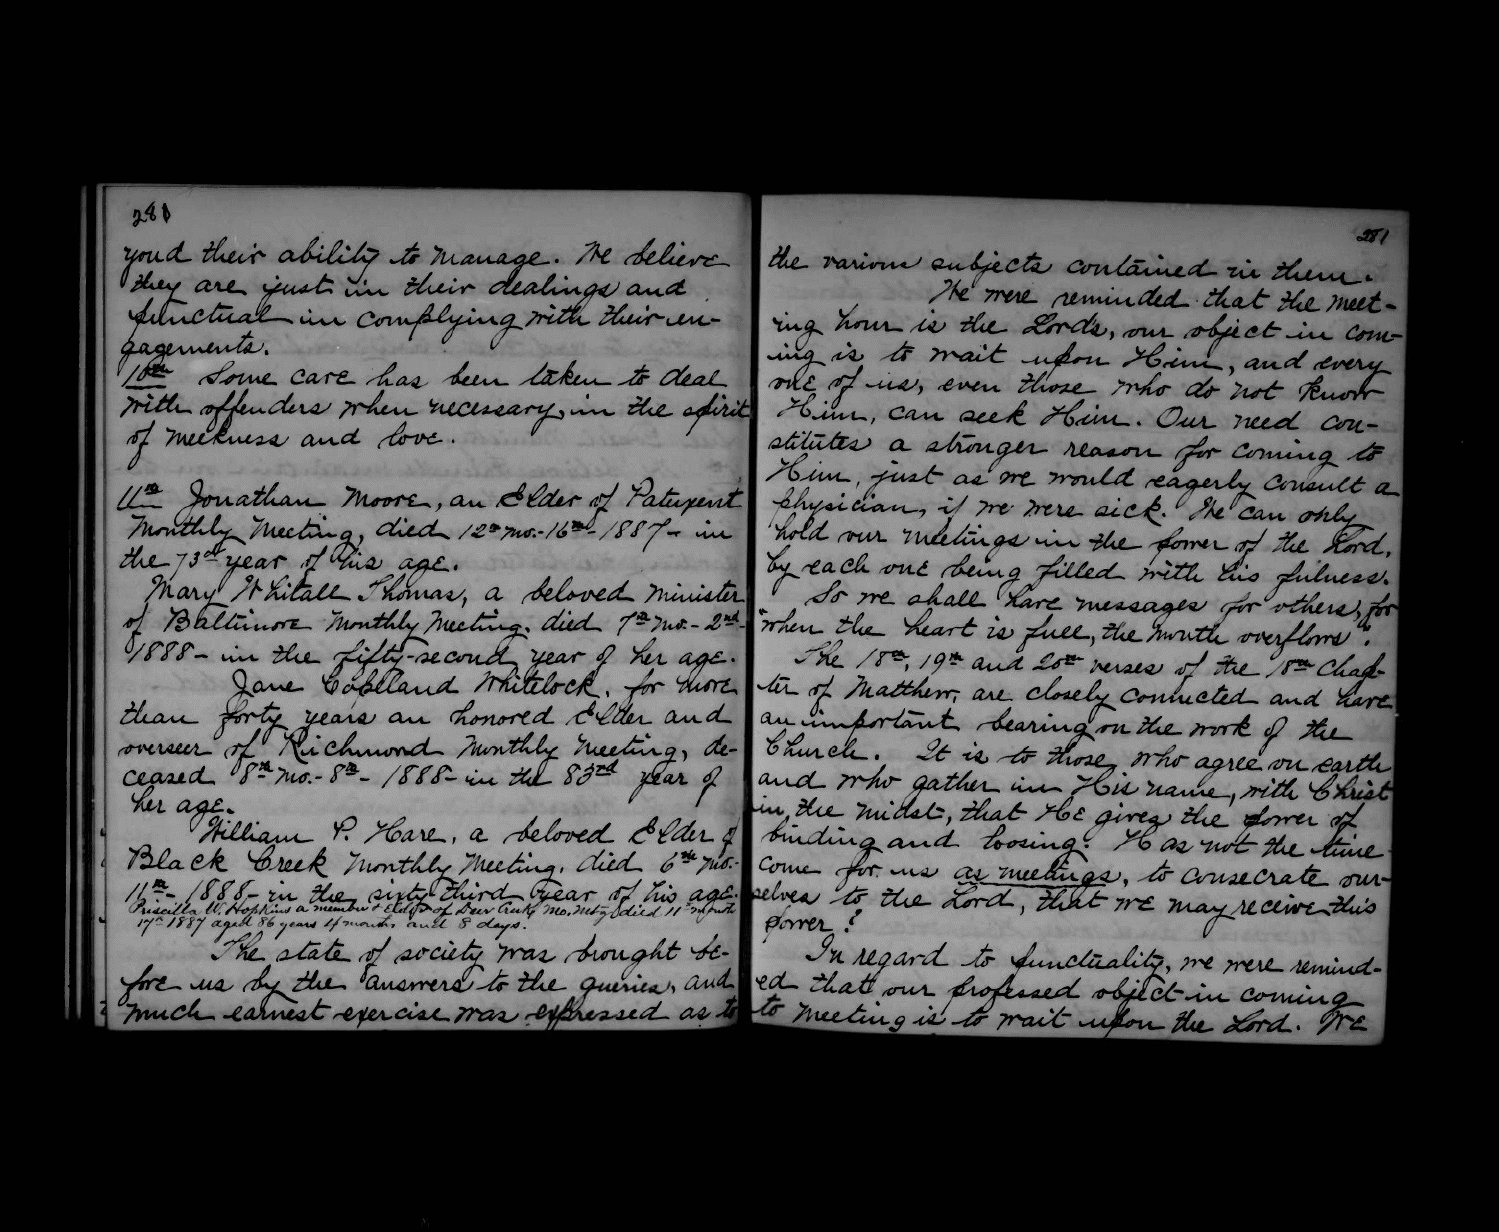 280
yond their ability to manage. We believe
they are just in their dealings and
punctual in complying with their en-
gagements.
10th Some care has been taken to deal
with offenders when necessary, in the spirit
of meekness and love.
11th Jonathan Moore, an Elder of Patuxent
Monthly Meeting, died 12th mo.-16th-1887- in
the 73rd year of his age.
Mary Whitall Thomas, a beloved minister
of Baltimore Monthly Meeting, died 7th mo.-2nd-
1888- in the fifty-second year of her age.
Jane Copeland Whitelock, for more
than forty years an honored Elder and
overseer of Richmond Monthly Meeting, de-
ceased 8th mo.-8th-1888- in the 83rd year of
her age.
William P. Hare, a beloved Elder of
Black Creek Monthly Meeting, died 6th mo.-
11th-1888- in the sixty-third year of his age.
Priscilla W. Hopkins a member & Elder of Deer Creek Mo. Mtg. died 11th month
17th 1887 aged 86 years 4 months and 8 days.
The state of society was brought be-
fore us by the answers to the queries, and
much earnest exercise was expressed as to
281
the various subjects contained in them.
We were reminded that the meet-
ing hour is the Lord's, our object in com-
ing is to wait upon Him, and every
one of us, even those who do not know
Him, can seek Him. Our need con-
stitutes a stronger reason for coming to
Him, just as we would eagerly consult a
physician, if we were sick. We can only
hold our meetings in the power of the Lord,
by each one being filled with his fulness.
So we shall have messages for others, for
"when the heart is full, the mouth overflows".
The 18th, 19th and 20th verses of the 18th Chap-
ter of Matthew, are closely connected and have
an important bearing on the work of the
Church. It is to those who agree on earth
and who gather in His name, with Christ
in the midst, that He gives the power of
binding and loosing. Has not the time
come for us as meetings, to consecrate our-
selves to the Lord, that we may receive this
power?
In regard to punctuality, we were remind-
ed that our professed object in coming
to meeting is to wait upon the Lord. We